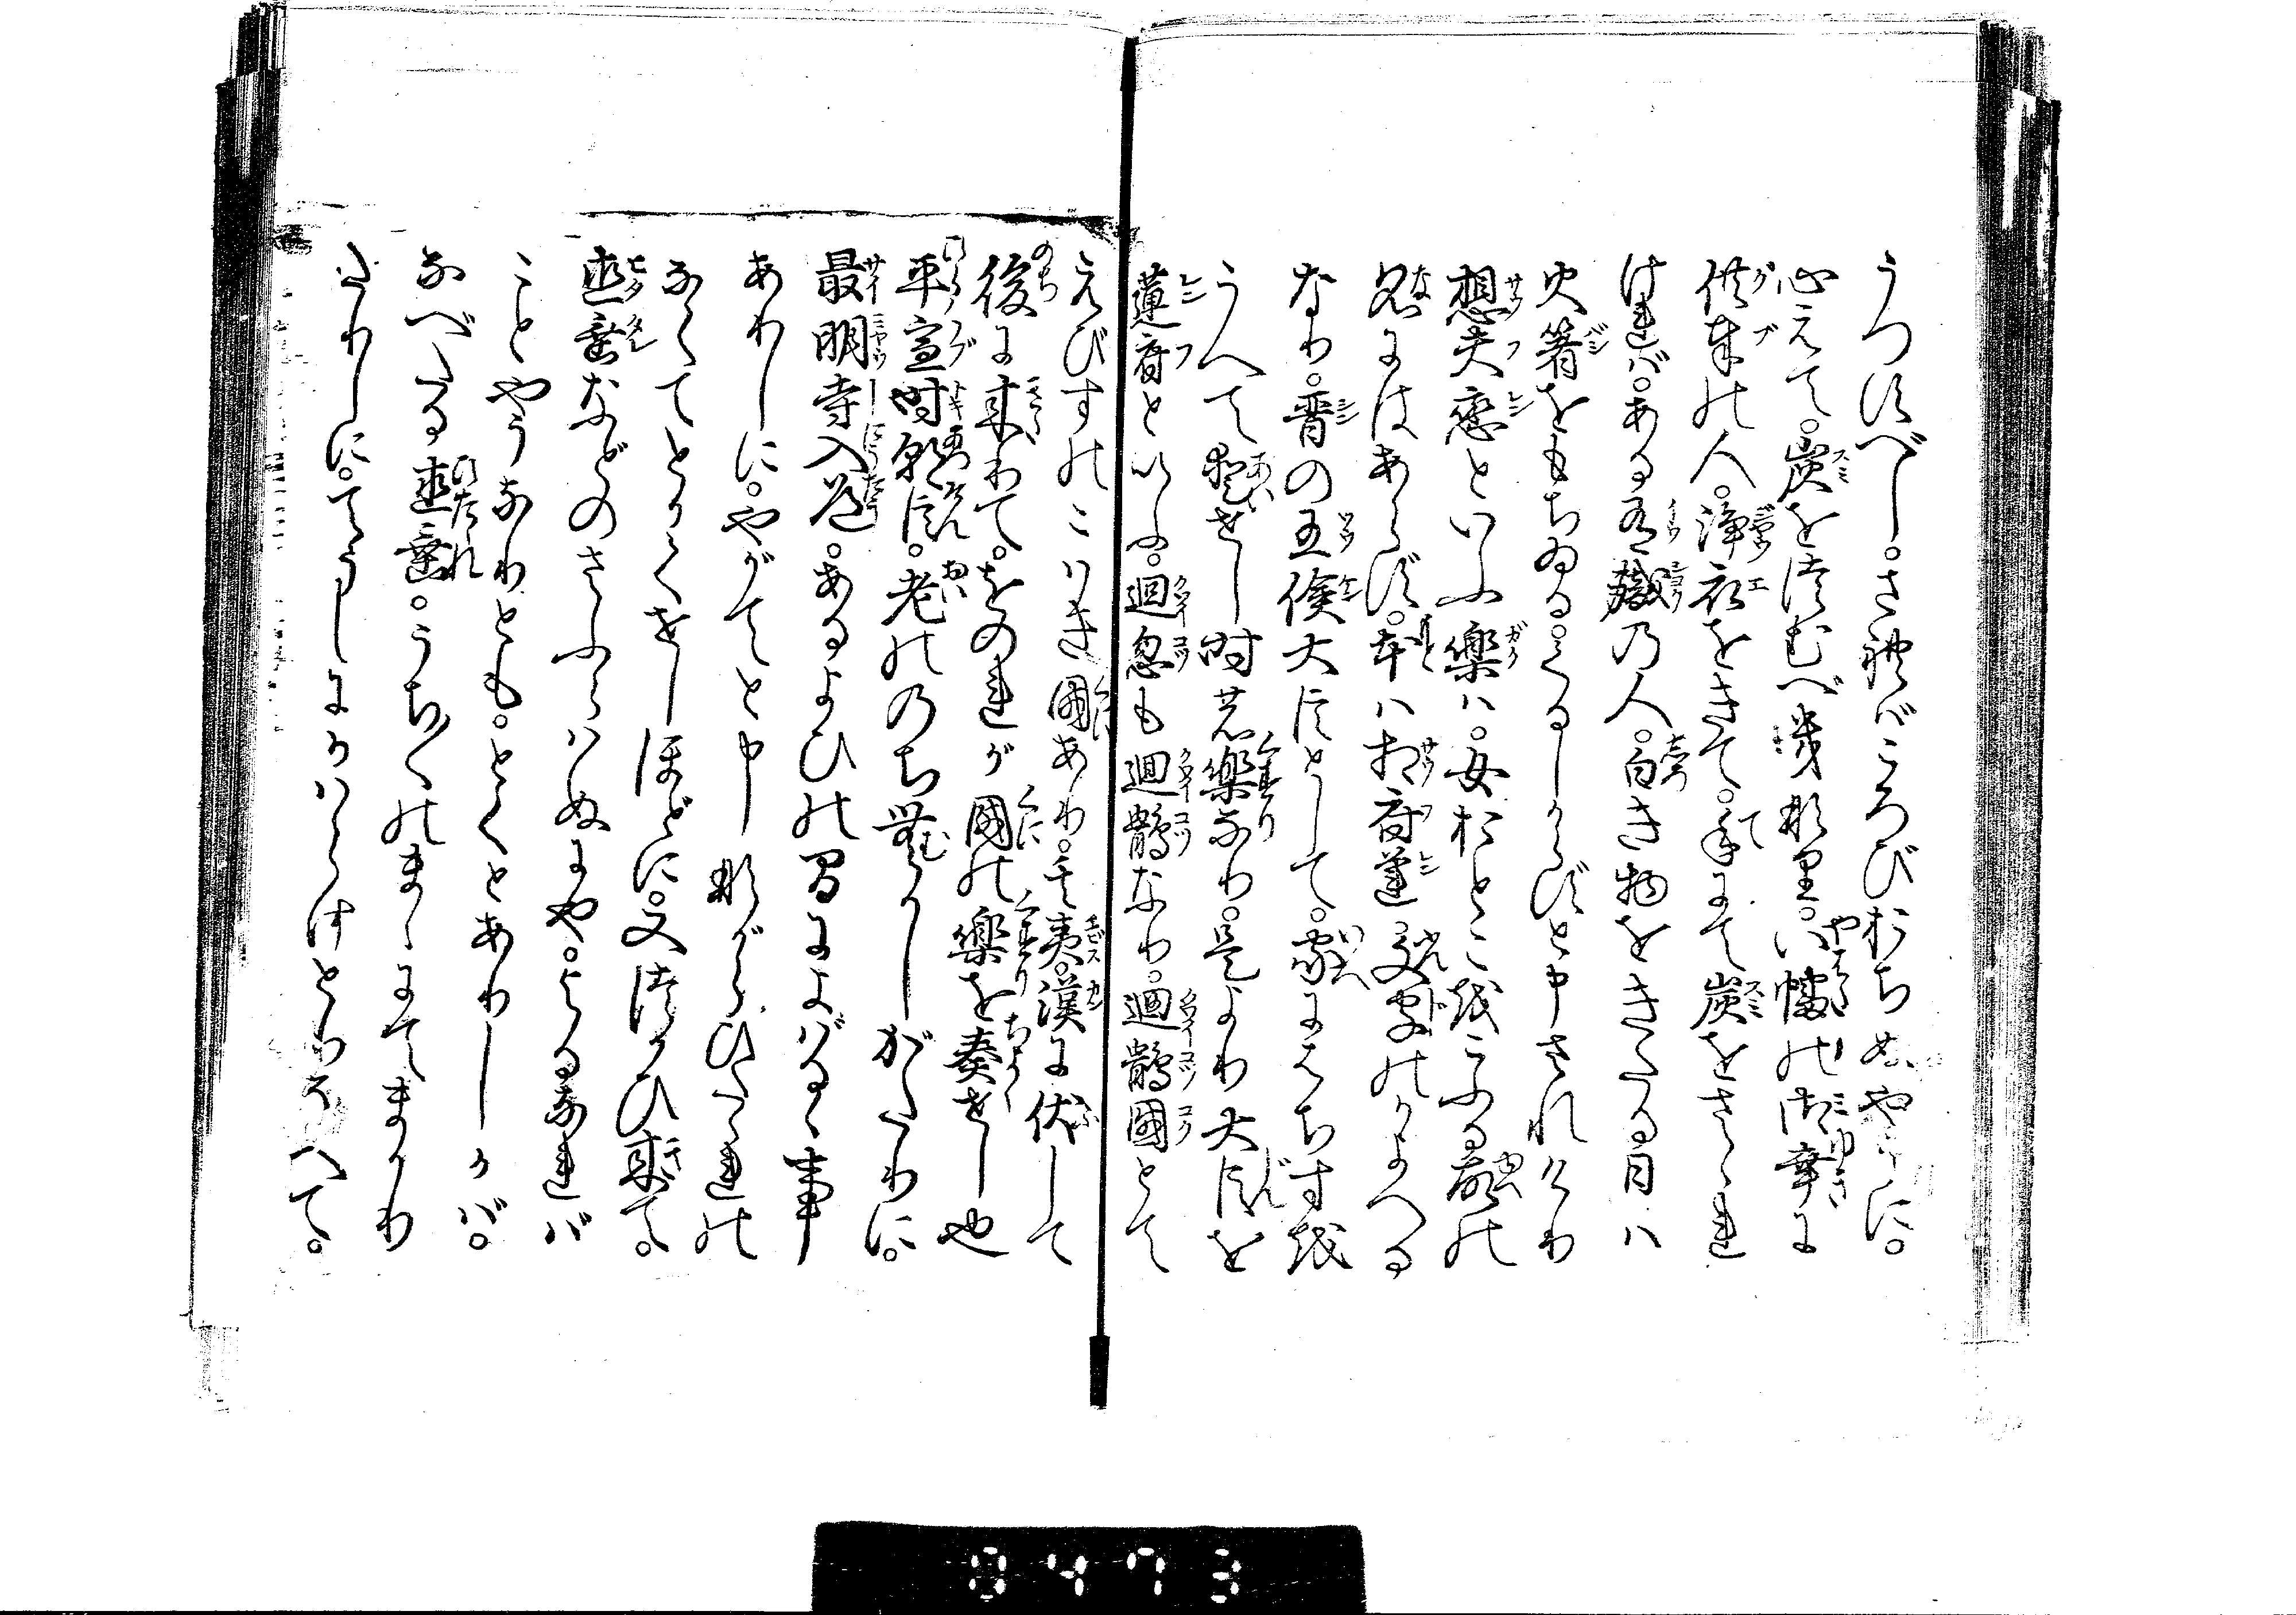 うつすべし。さればころびおちぬやうに。
心えて。炭をつむべき也。八幡の御幸に
供奉の人。浄衣をきて。手にて炭をさゝれ
ければ。ある有職の人。白き物をきたる日ハ
火箸をもちゐる。くるしからずと申されけり
想夫恋といふ楽ハ。女おとこをこふる故の
名にはあらず。本ハ相府蓮文字のかよへる
なり。晋の王倹大臣として。家にはちすを
うへて愛せし時の楽なり。是より大臣を
蓮府といふ。廻忽も廻鶻なり。廻鶻国とて
えびすのこハき国あり。其夷。漢に伏して
後に来りて。をのれが国の楽を奏せし也
平宣時朝臣。老のゝち昔がたりに。
最明寺入道。あるよひの間によばるゝ事
ありしに。やがてと申しながらひたゝれの
なくてとかくせしほどに。又つかひ来て。
直垂などのさふらハぬにや。よるなれバ
ことやうなりとも。とくとありしかバ。
なべたる直垂。うち〳〵のまゝにてまかり
たりしに。てうしにかハらけとりそへて。
8473